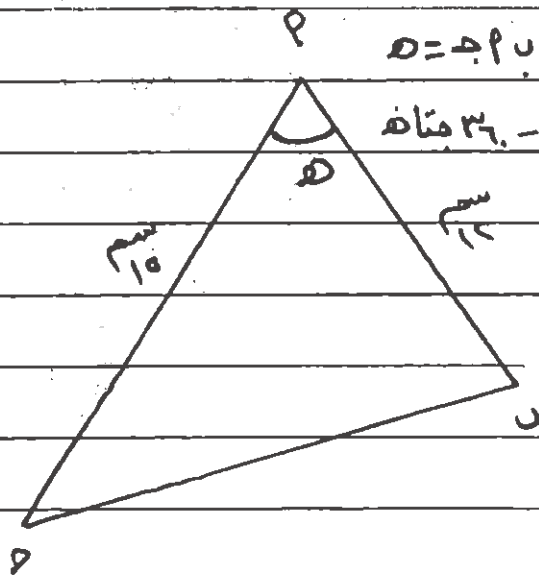 م
ب م جـ = هـ
- ٣٦٠ جتا هـ
هـ
١٥ سم
١٢ سم
ب
جـ